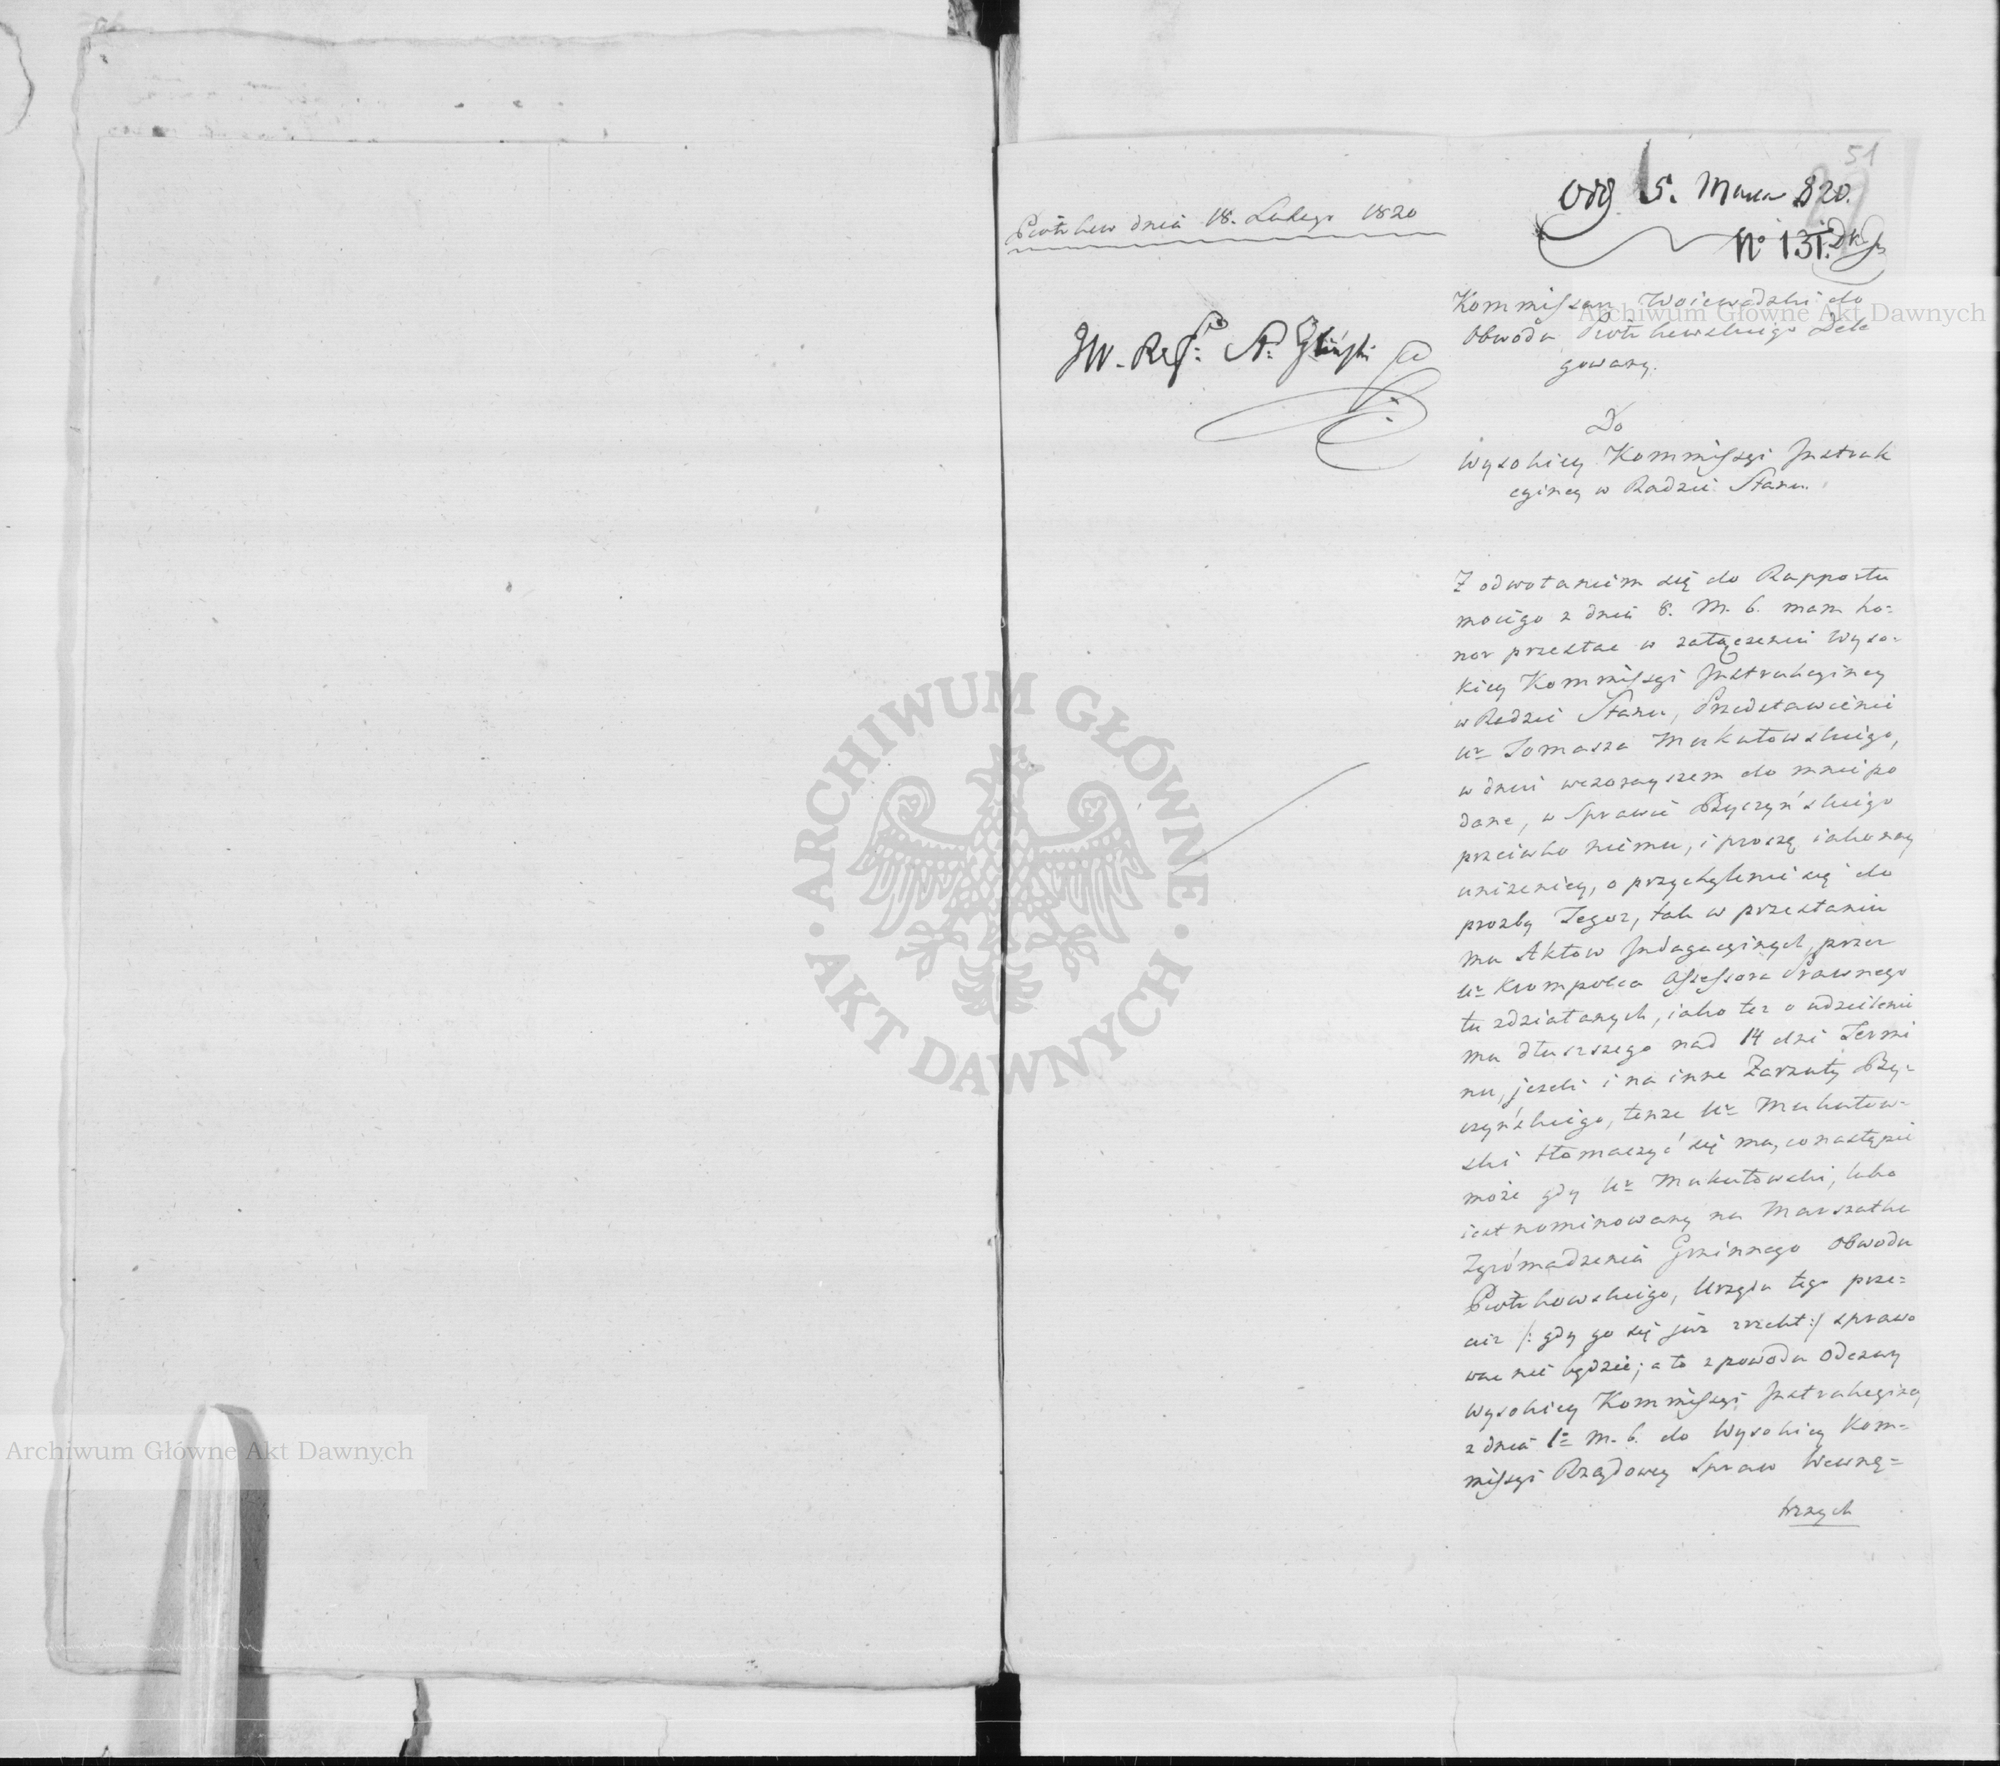 51
5. Marca 820.
No 131.
Piotrkow dnia 18. Lutego 1820
Kommissarz Woiewodzki do
Obwodu Piotrkowskiego Dele
gowany.
JW. Ref: St. Gliński
Do
Wysokiey Kommissyi Instruk
cyiney w Radzie Stanu.
Z odwołaniem się do Rapportu
moiego z dnia 8. m. b. mam ho-
nor przesłac w załączeniu Wyso-
kiey Kommissyi Instrukcyiney
w Radzie Stanu, Przedstawienie
Ur Tomasza Mukułowskiego,
w dniu wczorayszem do mnie po
dane, w Sprawie Byczyńskiego
przeciwko niemu, i proszę iak nay
unizeniey, o przychylenie się do
prozby Tegoz, tak w przesłaniu
mu Aktow Indagacyinych, przez
Ur Krompolca Assessora Prawnego
tu zdziałanych, iako tez o udzielenie
mu dłuzszego nad 14 dni Termi
nu, jezeli i na inne Zarzuty By-
czyńskiego, tenze Ur Mukułow-
ski tłomaczyć się ma, co nastąpić
może gdy Ur Mukułowski, lubo
iest nominowany na Marszałka
Zgrómadzenia Gminnego Obwodu
Piotrkowskiego, Urzędu tego prze-
ciez /: gdy go się juz zrzekł :/ sprawo
wac nie będzie; a to z powodu Odezwy
Wysokiey Kommissyi Instrukcyiney
z dnia 1o m. b. do Wysokiey Kom-
missyi Rządowey Spraw Wewnę-
trznych
Archiwum Główne Akt Dawnych
Archiwum Główne Akt Dawnych
ARCHIWUM GŁÓWNE
AKT DAWNYCH